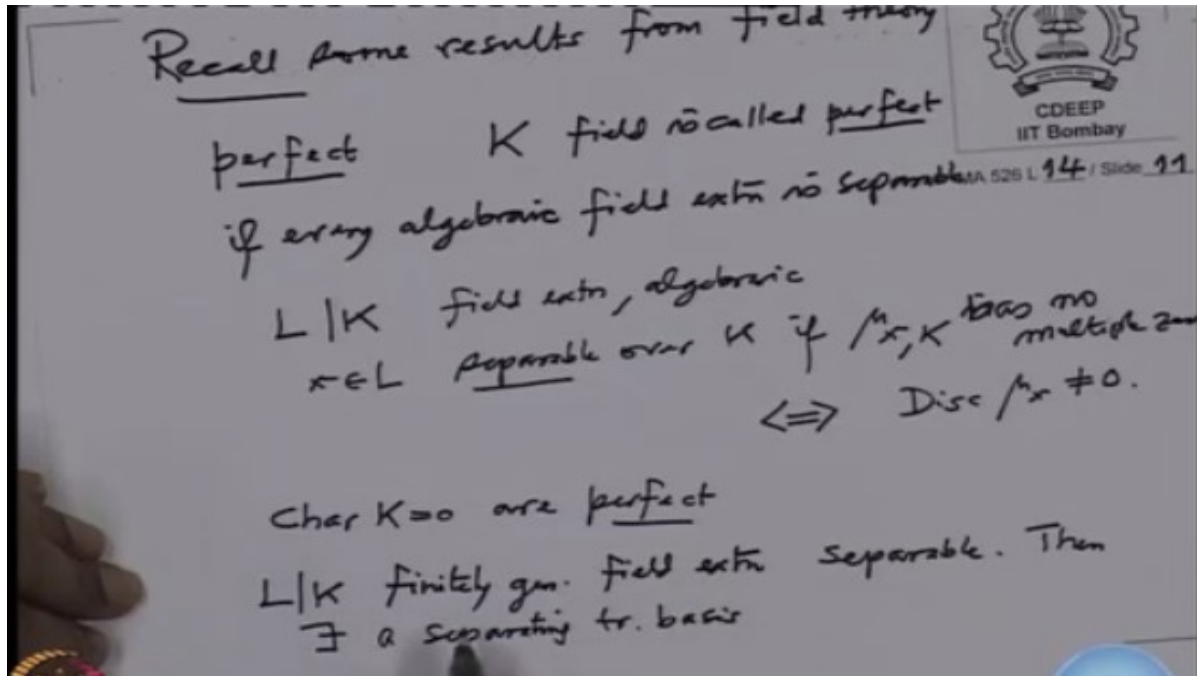 Recall some results from field theory
CDEEP
IIT Bombay
MA 526 L 14 / Slide 11
perfect K field is called perfect
if every algebraic field extn is separable
L|K field extn, algebraic
x∈L separable over K if μx,K has no
multiple
⟺ Disc μx ≠ 0.
Char K=0 are perfect
L|K finitely gen. field extn separable. Then
∃ a separating tr. basis